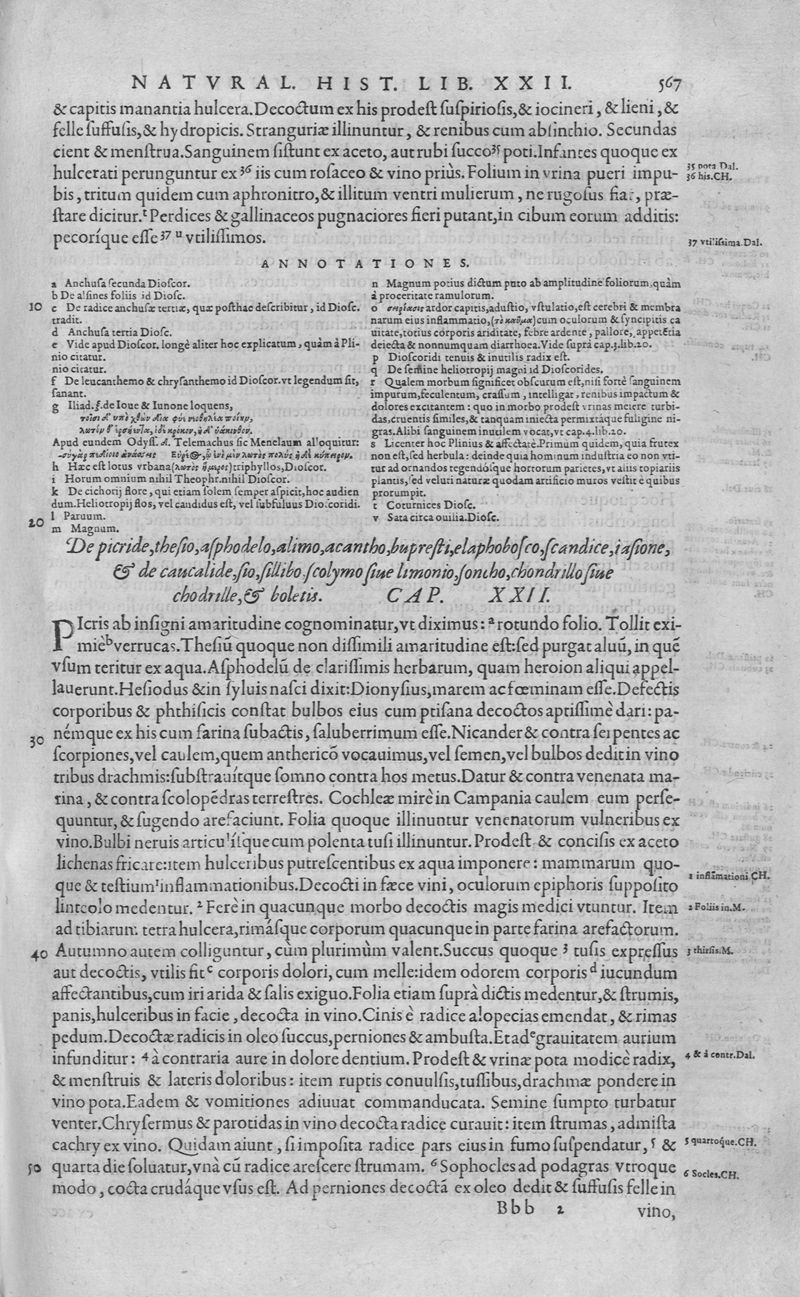 NATVRAL. HIST. LIB. XXII. 567
& capitis manantia hulcera.Decoctum ex his prodest suspiriosis,& iocineri, & lieni, &
felle suffusis,& hydropicis. Stranguriæ illinuntur, & renibus cum absinchio. Secundas
cient & menstrua.Sanguinem sistunt ex aceto, aut rubi succo³⁵ poti.Infantes quoque ex
hulcerati perunguntur ex³⁶ iis cum rosaceo & vino priùs. Folium in vrina pueri impu-
bis, tritum quidem cum aphronitro,& illitum ventri mulierum, ne rugosus fiat, præ-
stare dicitur.ᵗ Perdices & gallinaceos pugnaciores fieri putant,in cibum eorum additis:
pecoríque esse³⁷ ᵘ vtilissimos.
35 pota Dal.
36 his.CH.
37 vtilissima.Dal.
ANNOTATIONES.
a Anchusa secunda Dioscor.
b De alsines foliis id Diosc.
10 c De radice anchusæ tertiæ, quæ posthac describitur, id Diosc.
tradit.
d Anchusa tertia Diosc.
e Vide apud Dioscor. longè aliter hoc explicatum, quàm à Pli-
nio citatur.
nio citatur.
f De leucanthemo & chrysanthemo id Dioscor.vt legendum sit,
sanant.
g Iliad.ξ.de Ioue & Iunone loquens,
Apud eundem Odyss. δ. Telemachus sic Menelaum alloquitur:
h Hæc est lotus vrbana(λωτὸς ἥμερος)triphyllos,Dioscor.
i Horum omnium nihil Theophr.nihil Dioscor.
k De cichorij flore, qui etiam solem semper aspicit,hoc audien
dum.Heliotropij flos, vel candidus est, vel subfuluus Dioscoridi.
20 l Paruum.
m Magnum.
n Magnum potius dictum puto ab amplitudine foliorum,quàm
à proceritate ramulorum.
o σειρίασις ardor capitis,adustio, vstulatio,est cerebri & membra
narum eius inflammatio,(τὸ καῦμα)cum oculorum & syncipitis ca
uitate,totius corporis ariditate, febre ardente, pallore, appetētia
deiecta & nonnumquam diarrhoea.Vide suprà cap.3.lib.20.
p Dioscoridi tenuis & inutilis radix est.
q De semine heliotropij magni id Dioscorides.
r Qualem morbum significet obscurum est,nisi fortè sanguinem
impurum,feculentum, crassum, intelligat, renibus impactum &
dolores excitantem: quo in morbo prodest vrinas meiere turbi-
das,cruentis similes,& tanquam iniecta permixtáque fuligine ni-
gras.Alibi sanguinem inutilem vocat,vt cap.4.lib.20.
s Licenter hoc Plinius & affectatè.Primum quidem, quia frutex
non est,sed herbula: deinde quia hominum industria eo non vti-
tur ad ornandos tegendósque hortorum parietes,vt aliis topiariis
plantis,sed veluti naturæ quodam artificio muros vestit è quibus
prorumpit.
t Coturnices Diosc.
v Sata circa ouilia.Diosc.
De picride,thesio,asphodelo,alimo,acantho,bupresti,elaphobosco,scandice,iasione,
& de caucalide,sio,sillibo,scolymo siue limonio,soncho,chondrillo siue
chōdrille,& boletis. CAP. XXII.
PIcris ab insigni amaritudine cognominatur,vt diximus: ᵃ rotundo folio. Tollit exi-
miè ᵇ verrucas.Thesiū quoque non dissimili amaritudine est:sed purgat aluū, in quē
vsum teritur ex aqua.Asphodelū de clarissimis herbarum, quam heroion aliqui appel-
lauerunt.Hesiodus & in syluis nasci dixit:Dionysius,marem ac fœminam esse.Defectis
corporibus & phthisicis constat bulbos eius cum ptisana decoctos aptissimè dari: pa-
30 némque ex his cum farina subactis, saluberrimum esse.Nicander & contra serpentes ac
scorpiones,vel caulem,quem anthericō vocauimus,vel semen,vel bulbos dedit in vino
tribus drachmis:substrauítque somno contra hos metus.Datur & contra venenata ma-
rina, & contra scolopēdras terrestres. Cochleæ mirè in Campania caulem eum perse-
quuntur, & sugendo arefaciunt. Folia quoque illinuntur venenatorum vulneribus ex
vino.Bulbi neruis articulísque cum polenta tusi illinuntur. Prodest & concisis ex aceto
lichenas fricare:item hulceribus putrescentibus ex aqua imponere: mammarum quo-
que & testium ¹inflammationibus.Decocti in fæce vini, oculorum epiphoris supposito
linteolo medentur. ² Ferè in quacunque morbo decoctis magis medici vtuntur. Item
ad tibiarum tetra hulcera,rimásque corporum quacunque in parte farina arefactorum.
40 Autumno autem colliguntur, cùm plurimùm valent.Succus quoque ³ tusis expressus
aut decoctis, vtilis fit ᶜ corporis dolori, cum melle:idem odorem corporis ᵈ iucundum
affectantibus,cum iri arida & salis exiguo.Folia etiam suprà dictis medentur,& strumis,
panis,hulceribus in facie, decocta in vino.Cinis è radice alopecias emendat, & rimas
pedum.Decoctæ radicis in oleo succus,perniones & ambusta.Et ad ᵉ grauitatem aurium
infunditur: ⁴ à contraria aure in dolore dentium. Prodest & vrinæ pota modicè radix,
& menstruis & lateris doloribus: item ruptis conuulsis,tussibus,drachmæ pondere in
vino pota.Eadem & vomitiones adiuuat commanducata. Semine sumpto turbatur
venter.Chrysermus & parotidas in vino decocta radice curauit: item strumas, admista
cachry ex vino. Quidam aiunt, si imposita radice pars eius in fumo suspendatur, ⁵ &
50 quarta die soluatur,vnà cū radice arescere strumam. ⁶ Sophocles ad podagras vtroque
modo, cocta crudáque vsus est. Ad perniones decoctā ex oleo dedit & suffusis felle in
Bbb 2 vino,
1 inflāmationi CH.
2 Foliis in.M.
3 thirsis.M.
4 & à contr.Dal.
5 quartóque.CH.
6 Socles.CH.